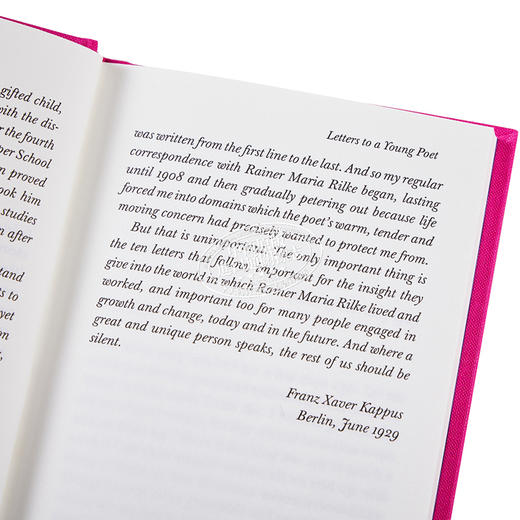 gifted child,
with the dis-
r the fourth
per School
n proved
ook him
studies
n after
tand
s to
yet
s
,
Letters to a Young Poet
was written from the first line to the last. And so my regular
correspondence with Rainer Maria Rilke began, lasting
until 1908 and then gradually petering out because life
forced me into domains which the poet's warm, tender and
moving concern had precisely wanted to protect me from.
But that is unimportant. The only important thing is
the ten letters that follow, important for the insight they
give into the world in which Rainer Maria Rilke lived and
worked, and important too for many people engaged in
growth and change, today and in the future. And where a
great and unique person speaks, the rest of us should be
silent.
Franz Xaver Kappus
Berlin, June 1929